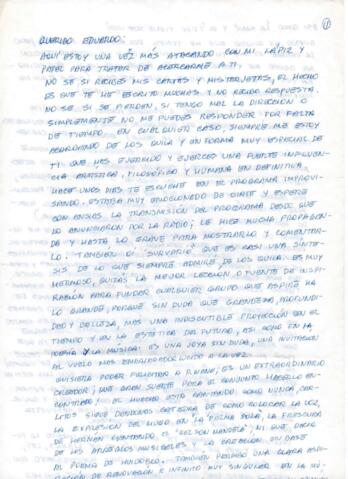 ①
QUERIDO EDUARDO:
AQUÍ ESTOY UNA VEZ MÁS ATACANDO CON MI LÁPIZ Y
PAPEL PARA TRATAR DE ACERCARME A TI.
NO SE SI RECIBES MIS CARTAS Y MIS TARJETAS, EL HECHO
ES QUE TE HE ESCRITO MUCHAS Y NO RECIBO RESPUESTA.
NO SE SI SE PIERDEN, SI TENGO MAL LA DIRECCION O
SIMPLEMENTE NO ME PUEDES RESPONDER POR FALTA
DE TIEMPO. EN CUALQUIER CASO, SIEMPRE ME ESTOY
ACORDANDO DE LOS QUILA Y EN FORMA MUY ESPECIAL DE
TI QUE HAS EJERCIDO Y EJERCES UNA FUERTE INFLUEN-
CIA ARTISTICA, FILOSÓFICA Y HUMANA EN DEFINITIVA.
HACE UNOS DÍAS TE ESCUCHÉ EN EL PROGRAMA IMPROVI-
SANDO. ESTABA MUY EMOCIONADO DE OIRTE Y ESPERÉ
CON ANSIAS LA TRANSMISIÓN DEL PROGRAMA DESDE QUE
LO ANUNCIARON POR LA RADIO; LE HICE MUCHA PROPAGAN-
DA Y HASTA LO GRABÉ PARA MOSTRARLO Y COMENTAR-
LO. TAMBIEN OÍ "SURVARIO" QUE ES CASI UNA SÍNTE-
SIS DE LO QUE SIEMPRE ADMIRÉ DE LOS QUILA. ES MUY
METAROSO, QUIZÁS LA MEJOR LECCIÓN O FUENTE DE INSPI-
RACIÓN PARA FUNDAR CUALQUIER GRUPO QUE ASPIRE HA
LO GRANDE, PORQUE SIN DUDA QUE GRANDEZA, PROFUNDI-
DAD Y BELLEZA, MAS UNA INDISCUTIBLE PROYECCIÓN EN EL
TIEMPO Y EN LA ESTÉTICA DEL FUTURO, ASÍ COMO EN LA
POESÍA Y LA MUSICA. ES UNA JOYA SIN DUDA, UNA INVITACIÓN
AL VUELO MAS EMBRIAGADOR LUCIDO A LA VEZ.
QUISIERA PODER FELICITAR A P.WANG; ES UN EXTRAORDINARIO
CREADOR; QUE GRAN SUERTE PARA EL CONJUNTO HABERLO EN-
CONTRADO! EL HUECHO ESTÁ CANTANDO COMO NUNCA, CAR-
LITOS SIGUE DANDONOS CATEDRA DE COMO COLOCAR LA VOZ,
LA EXPRESION DEL HUGO EN LA "PALMA SOLA", LA FRESCURA
DE HERNÁN CANTANDO EL "NELSON MANDELA"; NI QUE DECIR
DE LOS ARREGLOS MUSICALES Y LA CREACIÓN EN BASE
AL POEMA DE HUIDOBRO. TAMBIEN PERCIBO UNA CLARA ASPI-
RACIÓN DE RENOVACION E INFINITO MUY SINGULAR EN LA MÚ-